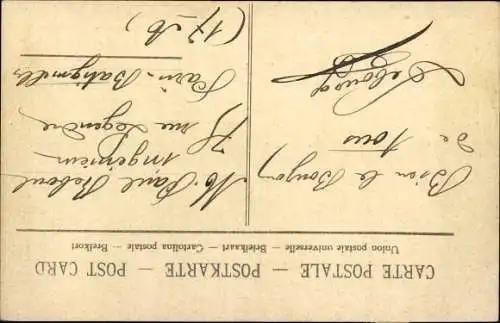 CARTE POSTALE — POSTKARTE — POST CARD
Union postale universelle — Briefkaart — Cartolina postale — Brefkort
Bien le Bonjour
de tous
M. Paul Rebout
ingénieur
75 rue Legendre
Paris-Batignolles
(17e)